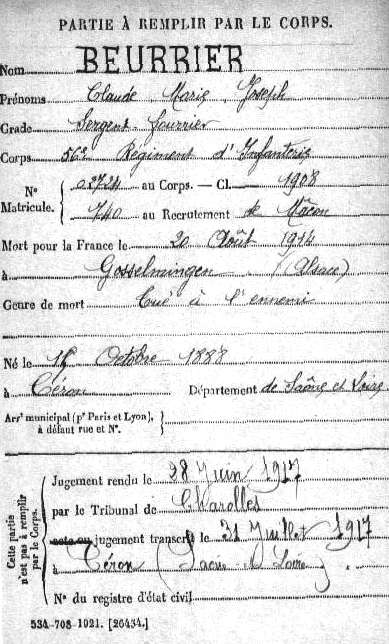 PARTIE À REMPLIR PAR LE CORPS.
Nom BEURRIER
Prénoms Claude Marie Joseph
Grade Sergent-fourrier
Corps 56e Régiment d'Infanterie
N° Matricule. { 02724 au Corps. — Cl. 1908
740 au Recrutement de Mâcon
Mort pour la France le 20 Août 1914
à Gosselmingen (Alsace)
Genre de mort Tué à l'ennemi
Né le Octobre 1888
à Céron Département de Saône et Loire
Arrt municipal (pr Paris et Lyon), à défaut rue et N°. }
Cette partie n'est pas à remplir par le Corps.
Jugement rendu le 28 Juin 1917
par le Tribunal de Charolles
acte ou jugement transcrit le 31 Juillet 1917
à Céron (Saône et Loire)
N° du registre d'état civil
534-708-1921. [26434.]